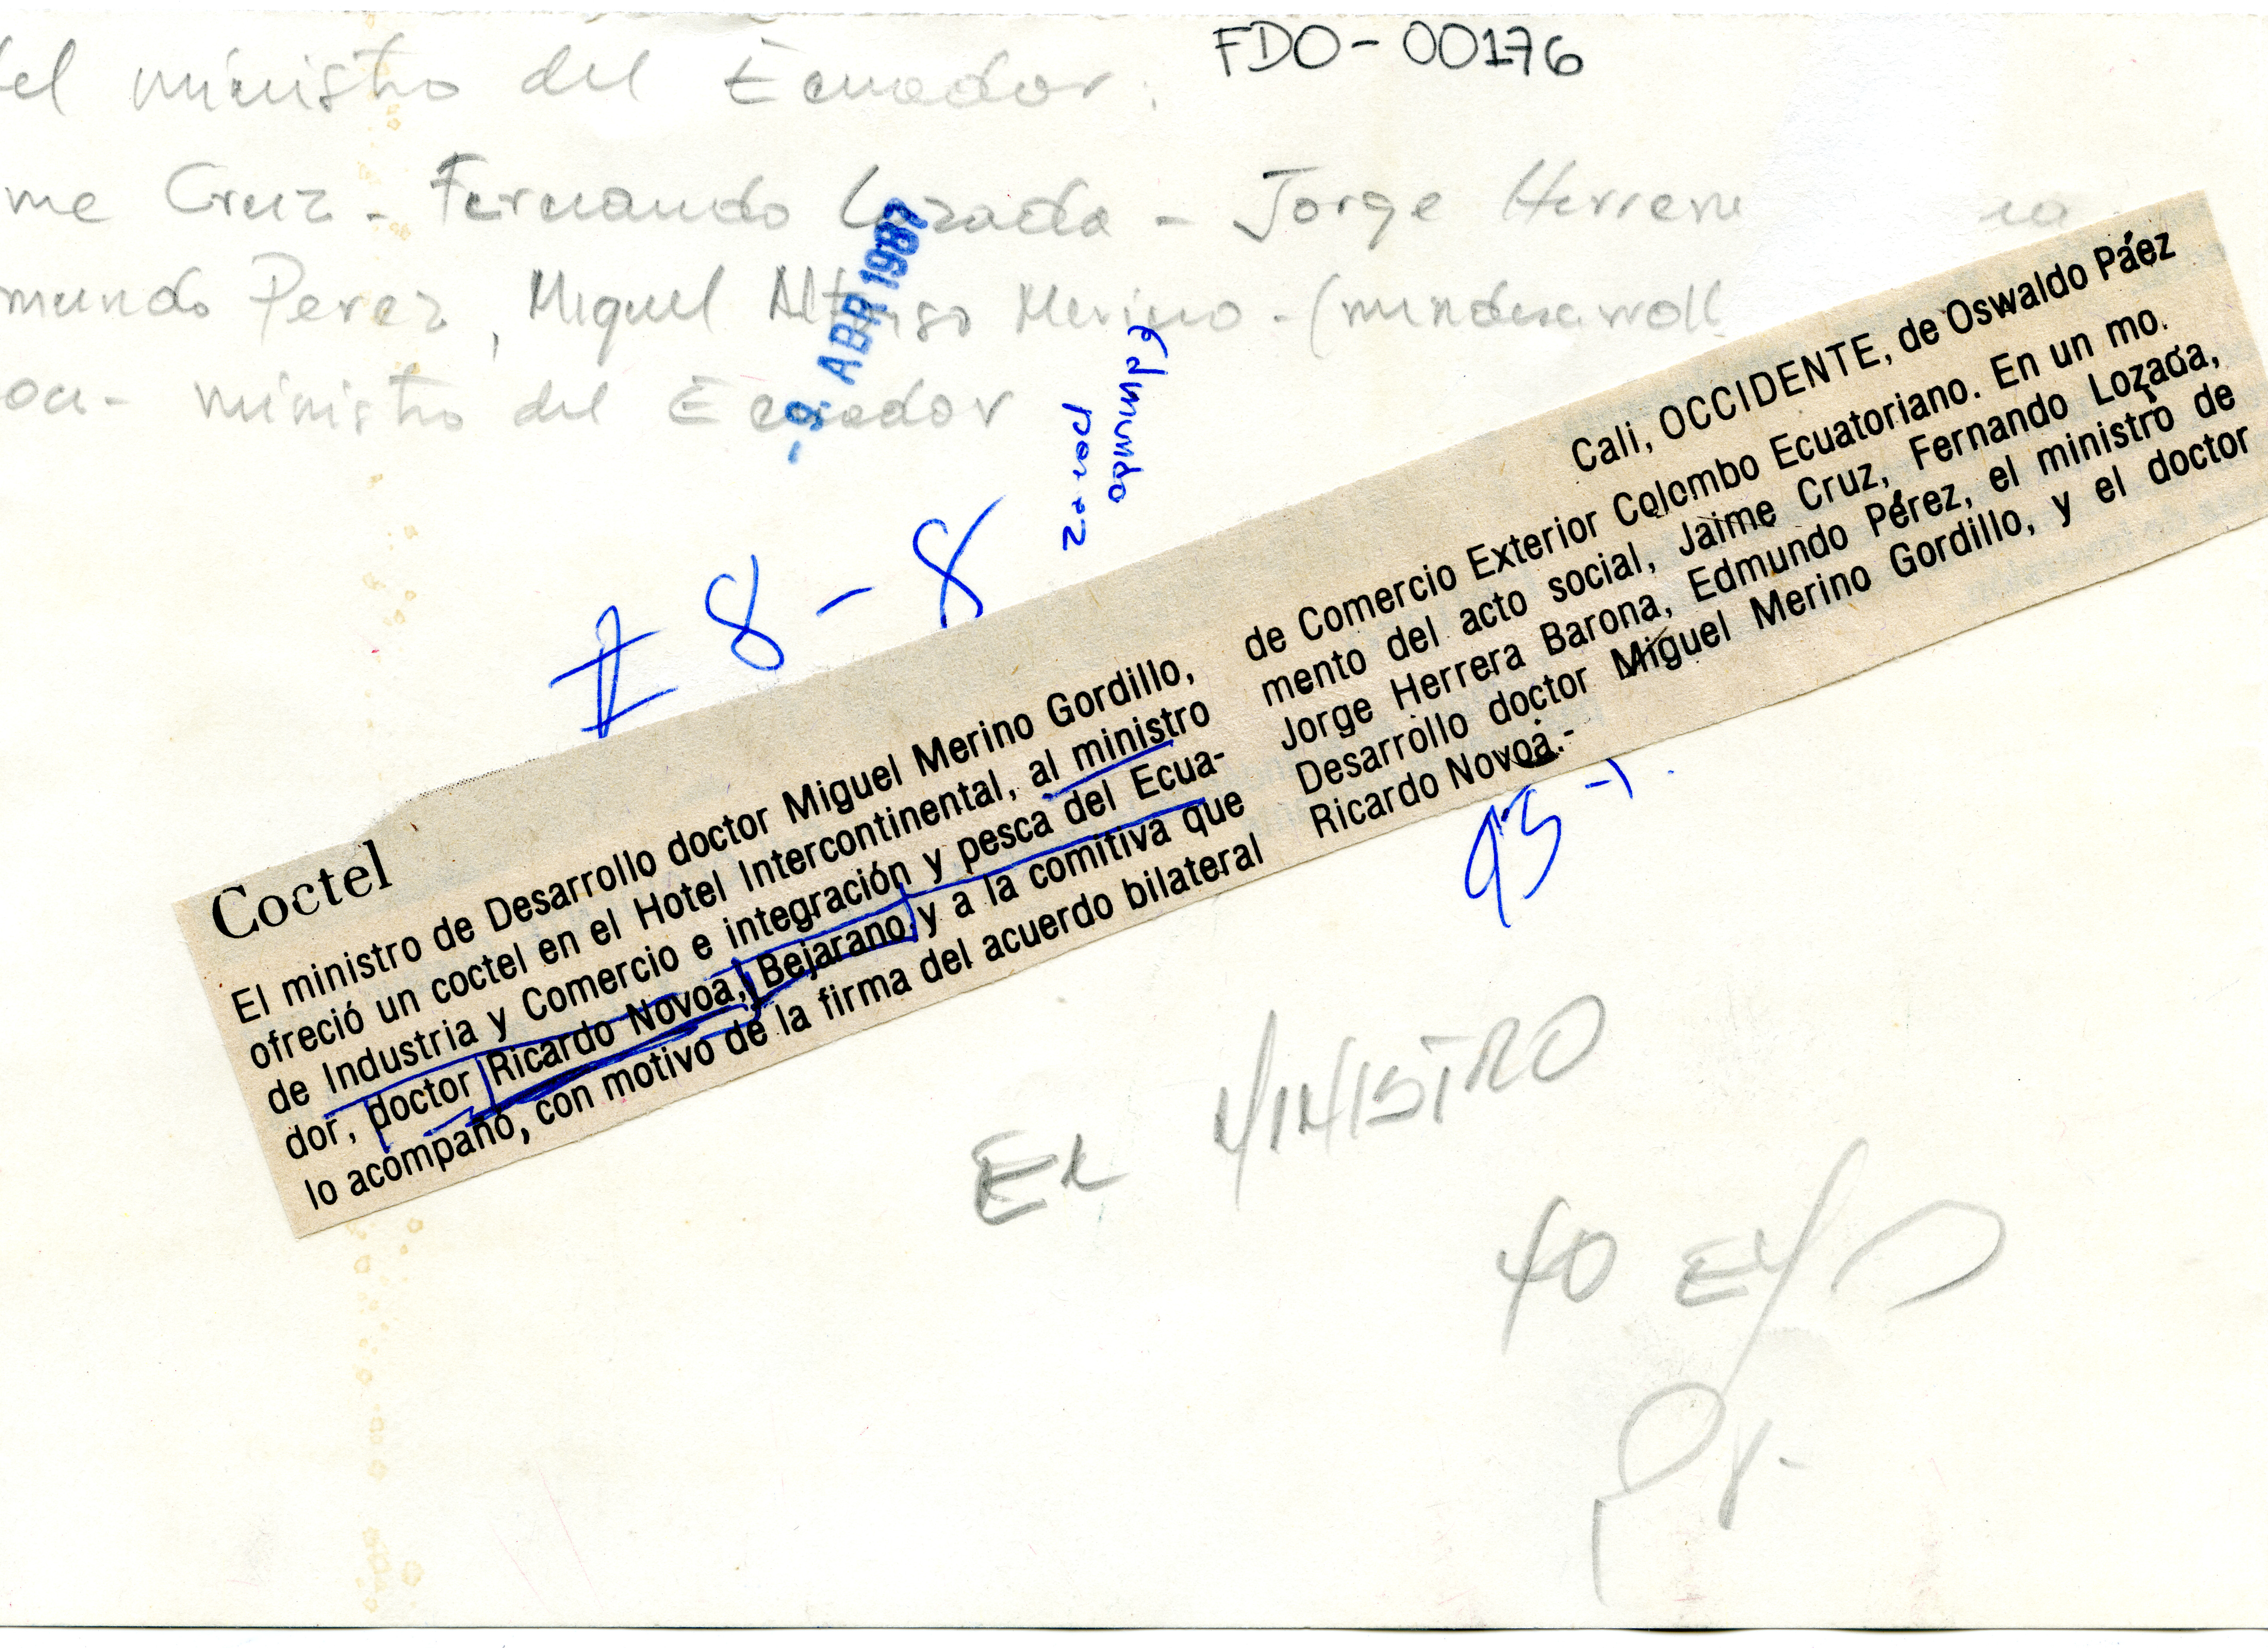 FDO-00176
el ministro del Ecuador.
me Cruz - Fernando Lozada - Jorge Herrera
mundo Perez, Miguel Alfonso Merino - (mindesarroll
oa - ministro del Ecuador
-9. ABR 1987
Edmundo
Perez
# 8-8
Cali, OCCIDENTE, de Oswaldo Páez
Coctel
El ministro de Desarrollo doctor Miguel Merino Gordillo,
ofreció un coctel en el Hotel Intercontinental, al ministro
de Industria y Comercio e integración y pesca del Ecua-
dor, doctor Ricardo Novoa, Bejarano, y a la comitiva que
lo acompañó, con motivo de la firma del acuerdo bilateral
de Comercio Exterior Colombo Ecuatoriano. En un mo.
mento del acto social, Jaime Cruz, Fernando Lozada,
Jorge Herrera Barona, Edmundo Pérez, el ministro de
Desarrollo doctor Miguel Merino Gordillo, y el doctor
Ricardo Novoa.-
EL MINISTRO